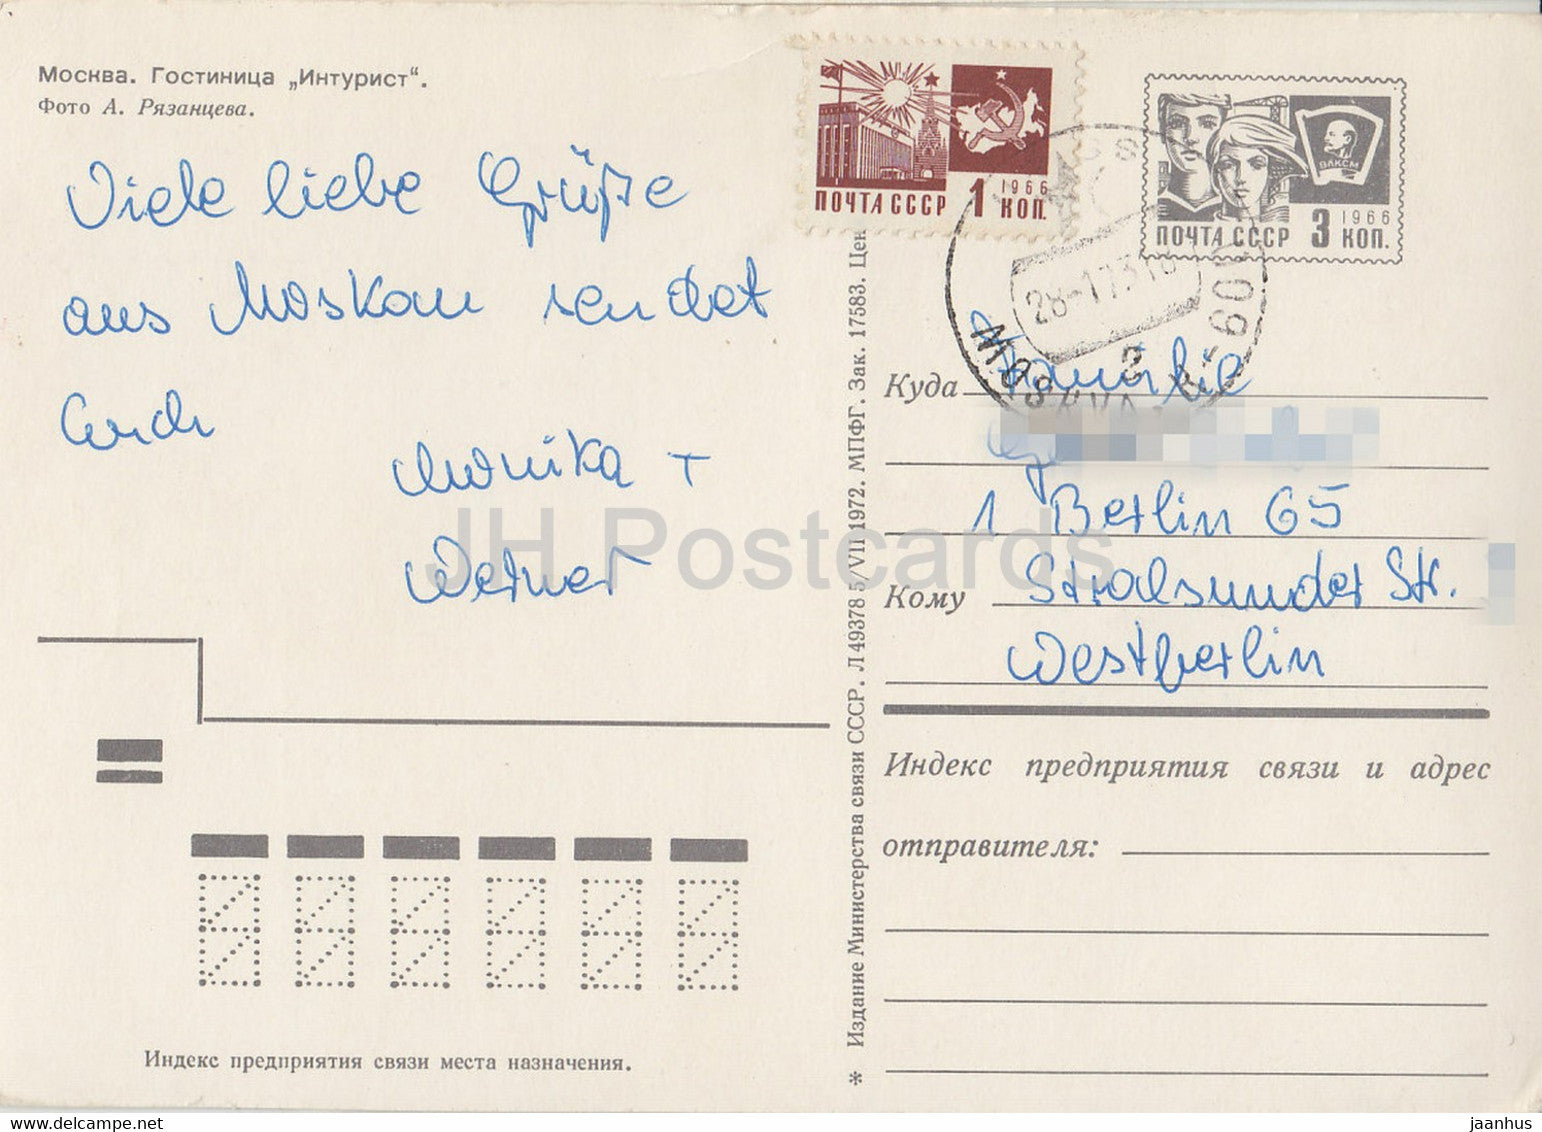 Москва. Гостиница „Интурист“.
Фото А. Рязанцева.
Viele liebe Grüße
aus Moskau sendet
Euch
Monika +
Werner
ПОЧТА СССР 1 1966 КОП.
ВЛКСМ
ПОЧТА СССР 3 1966 КОП.
MOSKVA
Куда Familie
1 Berlin 65
Кому Stralsunder Str.
Westberlin
Индекс предприятия связи и адрес
отправителя:
* Издание Министерства связи СССР. Л 49378 5/VII 1972. МПФГ. Зак. 17583. Цен
Индекс предприятия связи места назначения.
JH Postcards
jaanhus @ delcampe.net